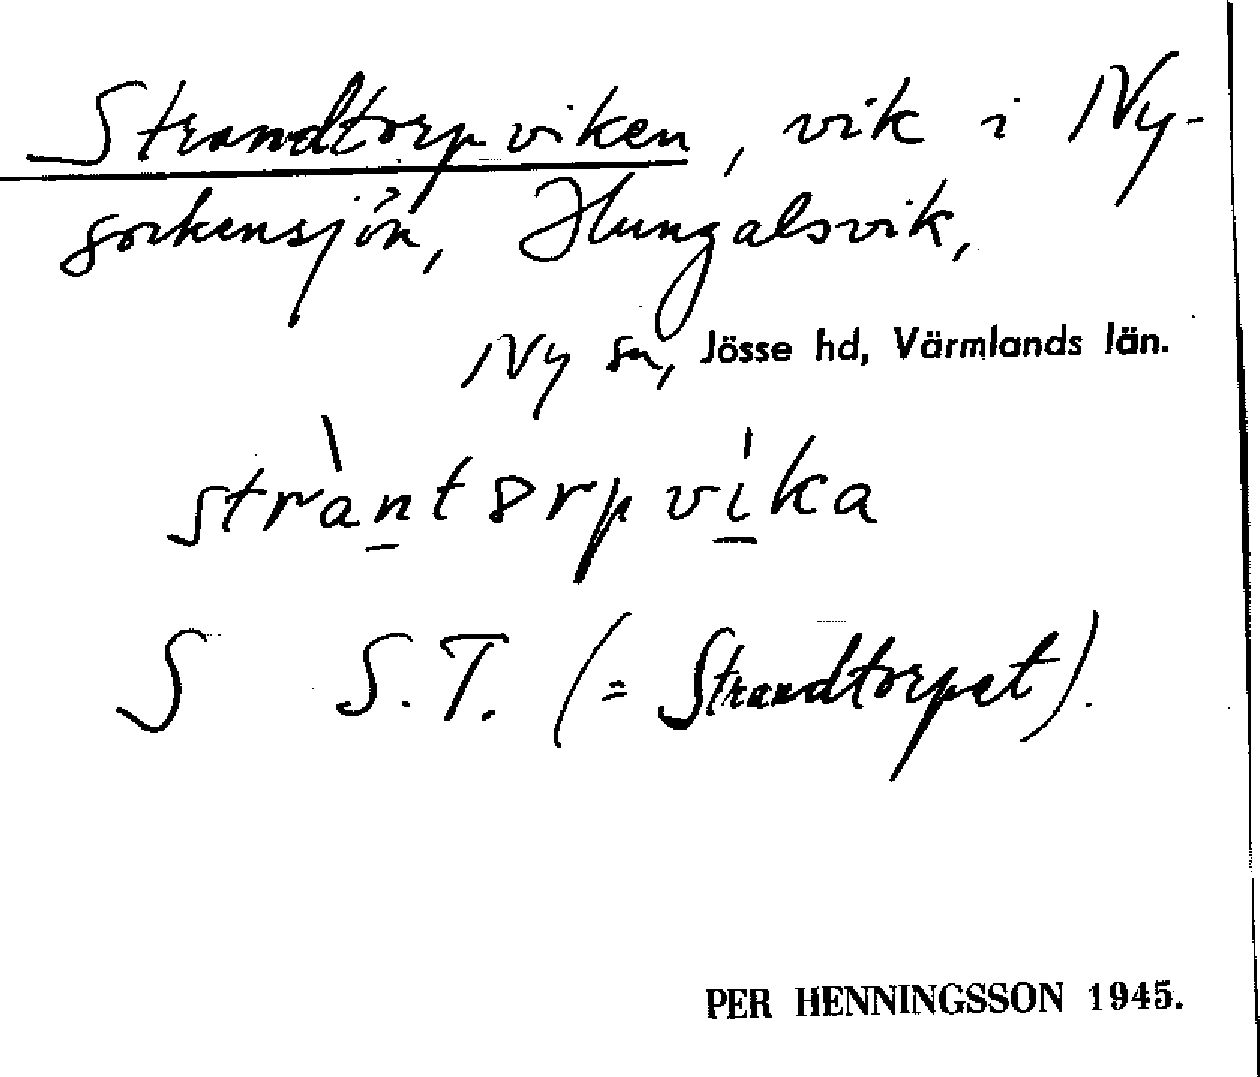 Strandtorpviken, vik i Ny-
sockensjön, Hungalsvik,
Ny sn, Jösse hd, Värmlands län.
stràntɞrpvi̍ka
S S.T. (= Strandtorpet).
PER HENNINGSSON 1945.